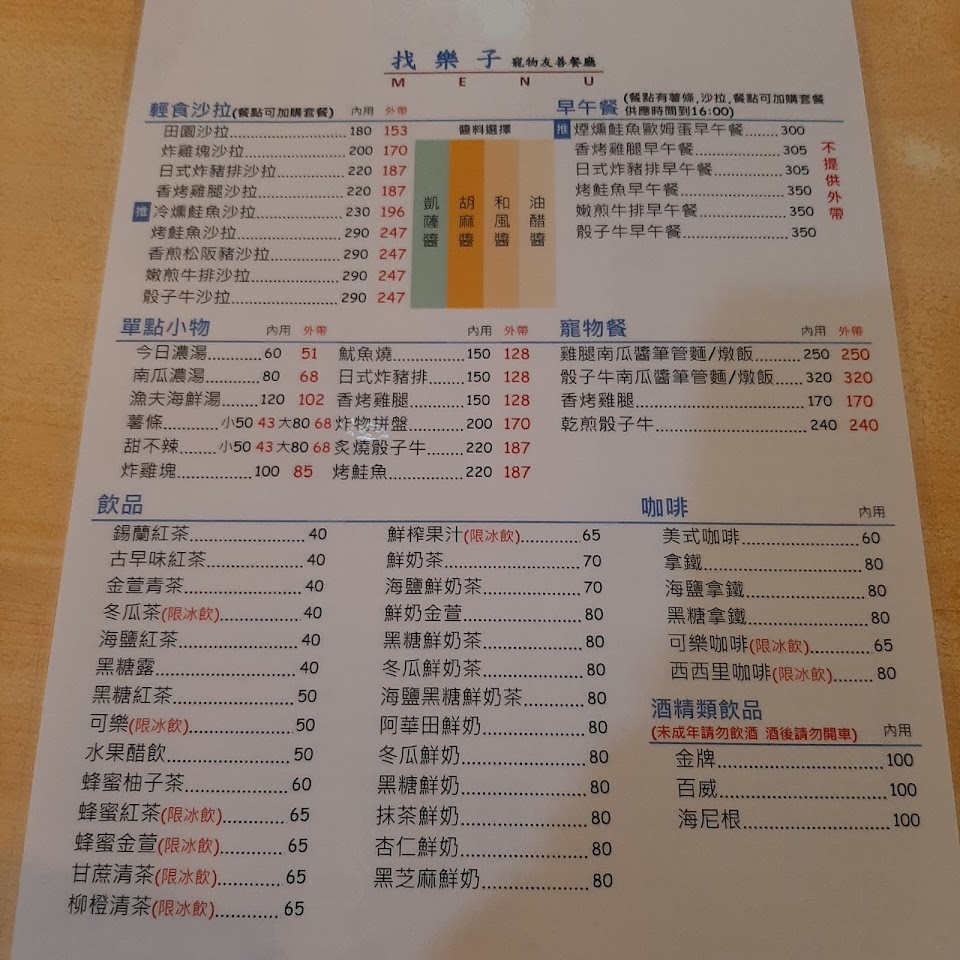 找樂子 寵物友善餐廳
MENU
輕食沙拉(餐點可加購套餐) 內用 外帶
田園沙拉 180 153
炸雞塊沙拉 200 170
日式炸豬排沙拉 220 187
香烤雞腿沙拉 220 187
推 冷燻鮭魚沙拉 230 196
烤鮭魚沙拉 290 247
香煎松阪豬沙拉 290 247
嫩煎牛排沙拉 290 247
骰子牛沙拉 290 247
醬料選擇
凱薩醬
胡麻醬
和風醬
油醋醬
早午餐 (餐點有薯條,沙拉,餐點可加購套餐
供應時間到16:00)
推 煙燻鮭魚歐姆蛋早午餐 300
香烤雞腿早午餐 305
日式炸豬排早午餐 305
烤鮭魚早午餐 350
嫩煎牛排早午餐 350
骰子牛早午餐 350
不提供外帶
單點小物 內用 外帶
今日濃湯 60 51
南瓜濃湯 80 68
漁夫海鮮湯 120 102
薯條 小50 43 大80 68
甜不辣 小50 43 大80 68
炸雞塊 100 85
內用 外帶
魷魚燒 150 128
日式炸豬排 150 128
香烤雞腿 150 128
炸物拼盤 200 170
炙燒骰子牛 220 187
烤鮭魚 220 187
寵物餐 內用 外帶
雞腿南瓜醬筆管麵/燉飯 250 250
骰子牛南瓜醬筆管麵/燉飯 320 320
香烤雞腿 170 170
乾煎骰子牛 240 240
飲品
錫蘭紅茶 40
古早味紅茶 40
金萱青茶 40
冬瓜茶(限冰飲) 40
海鹽紅茶 40
黑糖露 40
黑糖紅茶 50
可樂(限冰飲) 50
水果醋飲 50
蜂蜜柚子茶 60
蜂蜜紅茶(限冰飲) 65
蜂蜜金萱(限冰飲) 65
甘蔗清茶(限冰飲) 65
柳橙清茶(限冰飲) 65
鮮榨果汁(限冰飲) 65
鮮奶茶 70
海鹽鮮奶茶 70
鮮奶金萱 80
黑糖鮮奶茶 80
冬瓜鮮奶茶 80
海鹽黑糖鮮奶茶 80
阿華田鮮奶 80
冬瓜鮮奶 80
黑糖鮮奶 80
抹茶鮮奶 80
杏仁鮮奶 80
黑芝麻鮮奶 80
咖啡 內用
美式咖啡 60
拿鐵 80
海鹽拿鐵 80
黑糖拿鐵 80
可樂咖啡(限冰飲) 65
西西里咖啡(限冰飲) 80
酒精類飲品
(未成年請勿飲酒 酒後請勿開車) 內用
金牌 100
百威 100
海尼根 100